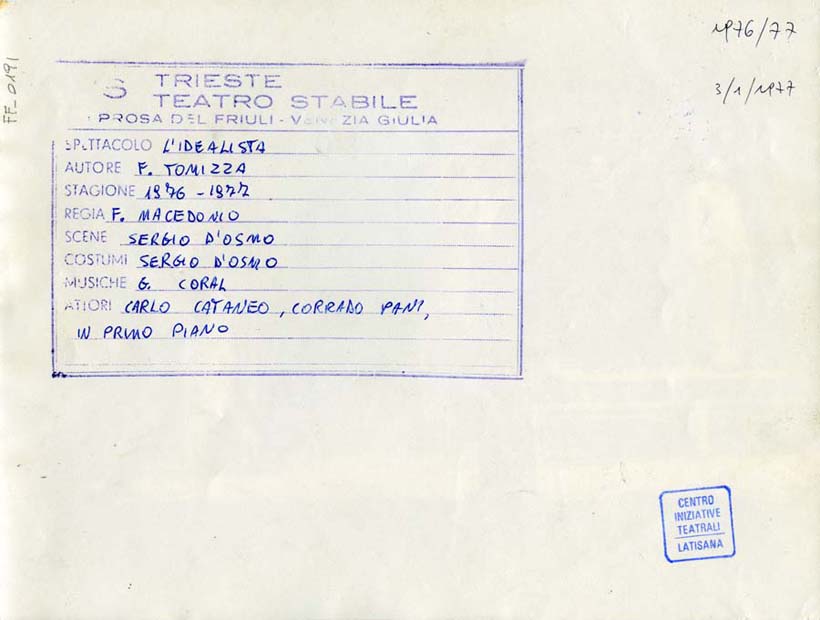 1976/77
3/1/1977
FF_0191
S TRIESTE
TEATRO STABILE
PROSA DEL FRIULI - VENEZIA GIULIA
SPETTACOLO L'IDEALISTA
AUTORE F. TOMIZZA
STAGIONE 1976 - 1977
REGIA F. MACEDONIO
SCENE SERGIO D'OSMO
COSTUMI SERGIO D'OSMO
MUSICHE G. CORAL
ATTORI CARLO CATANEO, CORRADO PANI,
IN PRIMO PIANO
CENTRO
INIZIATIVE
TEATRALI
LATISANA